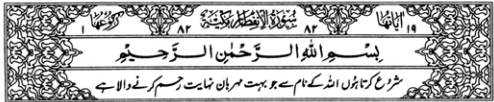 اٰیَاتُهَا ۱۹ ۸۲ سُوْرَةُ الْاِنْفِطَارِ مَكِّيَّةٌ ۸۲ رُكُوْعُهَا ۱
بِسْمِ اللهِ الرَّحْمٰنِ الرَّحِيْمِ
شروع کرتا ہوں اللہ کے نام سے جو بہت مہربان نہایت رحم کرنے والا ہے